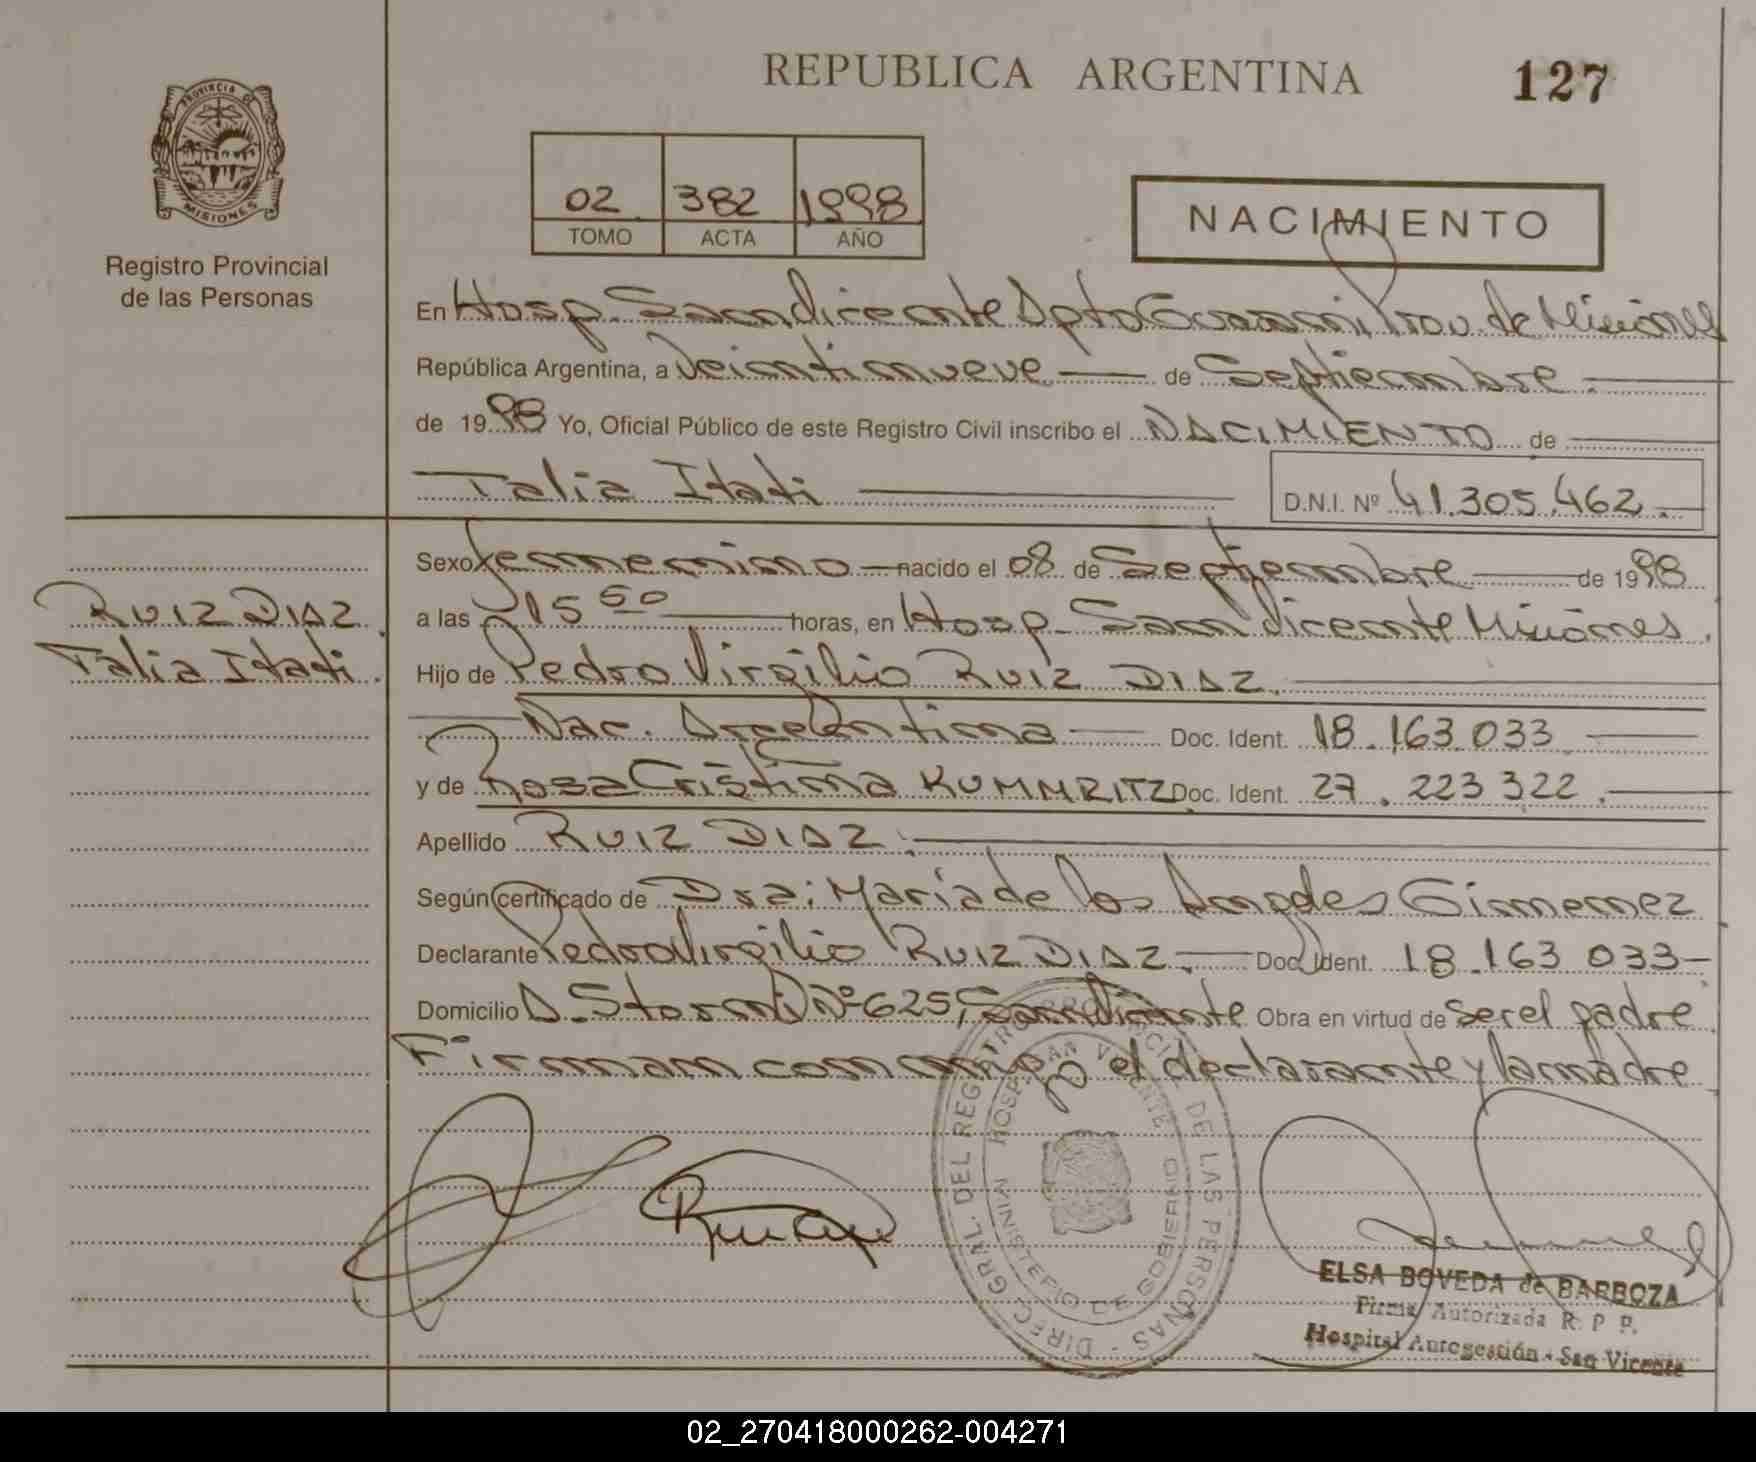 REPUBLICA ARGENTINA
127
PROVINCIA DE
MISIONES
Registro Provincial
de las Personas
02 382 1998
TOMO ACTA AÑO
NACIMIENTO
En Hosp. San Vicente Dpto Guarani, Prov. de Misiones
República Argentina, a Veintinueve de Septiembre.
de 1998 Yo, Oficial Público de este Registro Civil inscribo el NACIMIENTO de
Talia Itati
D.N.I. Nº 41.305.462.-
RUIZ DIAZ
Talia Itati.
Sexo femenino nacido el 08 de Septiembre de 1998
a las 15 50 horas, en Hosp. San Vicente Misiones.
Hijo de Pedro Virgilio RUIZ DIAZ.
Nac. Argentina Doc. Ident. 18.163.033
y de Rosa Cristina KUMMRITZ Doc. Ident. 27.223 322.
Apellido RUIZ DIAZ.
Según certificado de Dra: Maria de los Angeles Gimenez
Declarante Pedro Virgilio RUIZ DIAZ.- Doc. Ident. 18.163 033-
Domicilio A. Storni Nº 625, San Vicente Obra en virtud de ser el padre
Firman conmigo el declarante y la madre
DIREC. GRAL. DEL REGISTRO PROVINCIAL DE LAS PERSONAS
HOSPITAL SAN VICENTE
MINISTERIO DE GOBIERNO
ELSA BOVEDA de BARBOZA
Firma Autorizada R. P P.
Hospital Autogestión - San Vicente
02_270418000262-004271